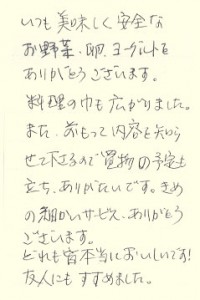 いつも美味しく安全な
お野菜、卵、ヨーグルトを
ありがとうございます。
料理の巾も広がりました。
また、前もって内容を知ら
せて下さるので買物の予定も
立ち、ありがたいです。きめ
の細かいサービス、ありがとう
ございます。
どれも皆本当においしいです!
友人にもすすめました。